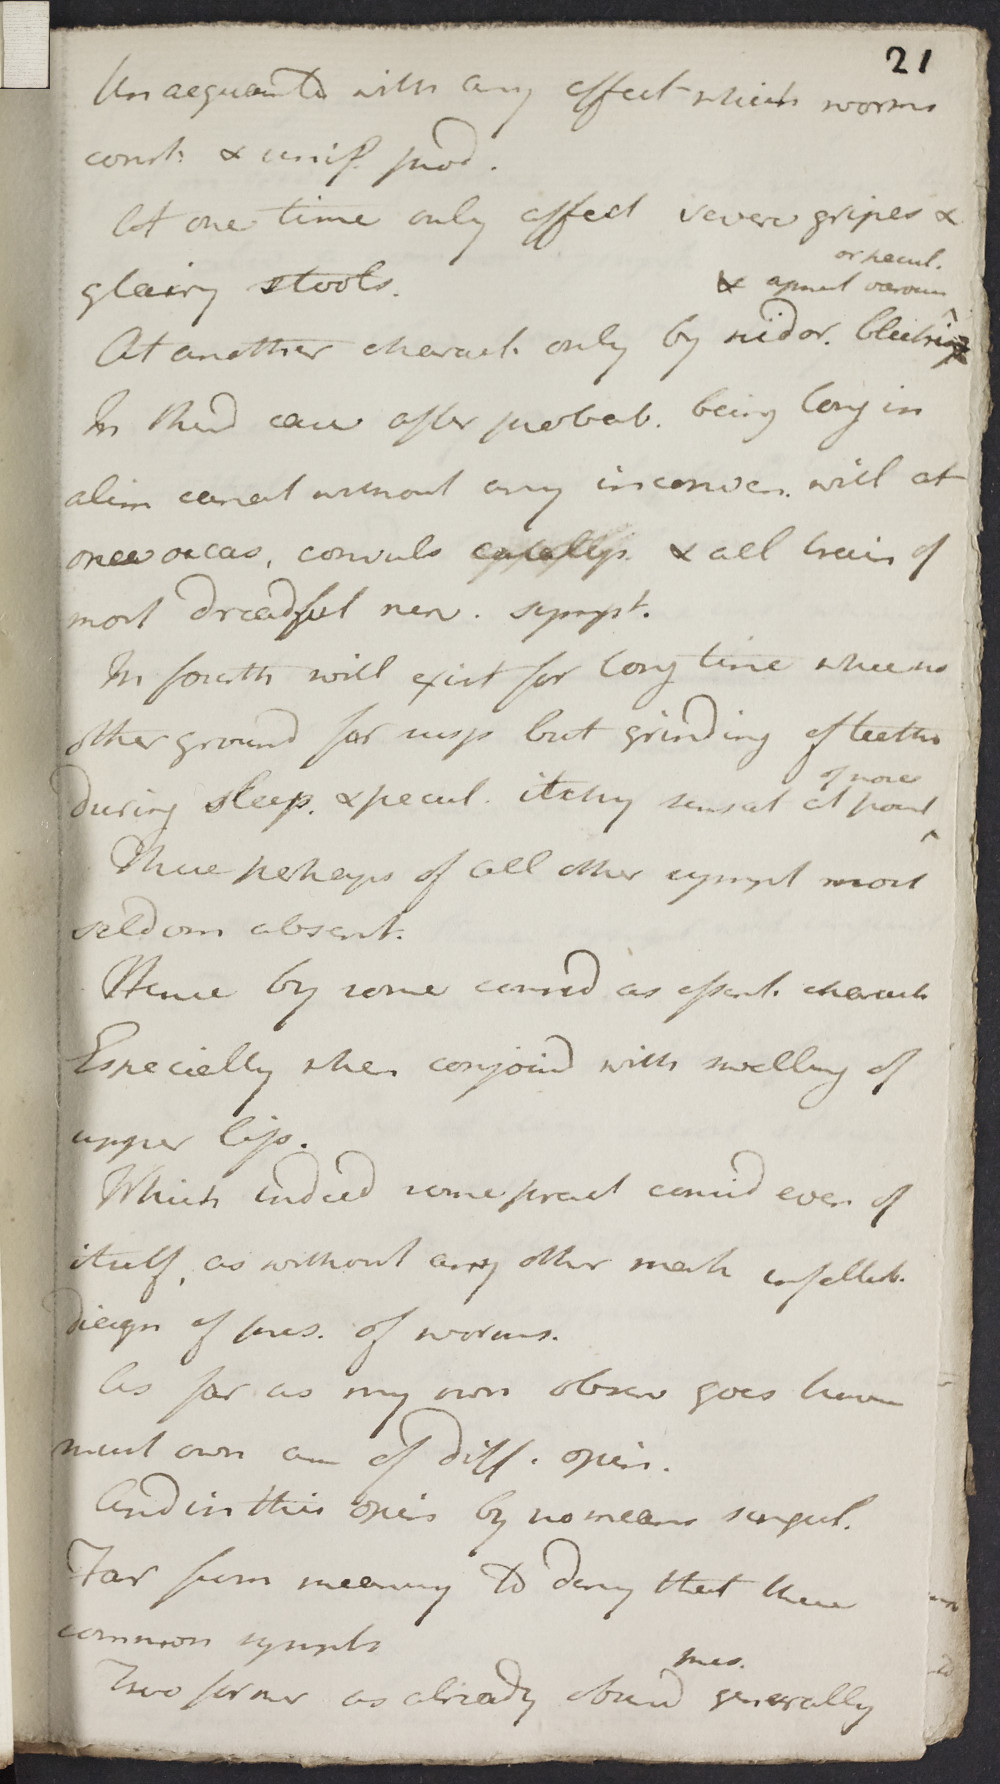 21
Unacquainted with any effect which worms
const. & unif. prod.
At one time only affect severe gripes &
glairy stools.
or pecul.
& appet varous
At another charact. only by nidor. belching
In third case after probab. being long in
alim canal without any inconven. will at
once occas. convuls epilepsy. & all train of
most dreadful nerv. sympt.
In fourth will exist for long time when no
other ground for susp but grinding of teeth
of nose
during sleep. & pecul. itchy sensat at point
These perhaps of all other sympt most
seldom absent.
Hence by some consid as essent. charact
Especially when conjoind with swelling of
upper lip.
Which indeed some pract consid even of
itself, as without any other mark infallib.
diagn of pres. of worms.
As far as my own observ goes however
must own am of diff. opin.
And in this opin by no means singul.
Far from meaning to deny that these
common sympts
pres.
Two former as already observd generally